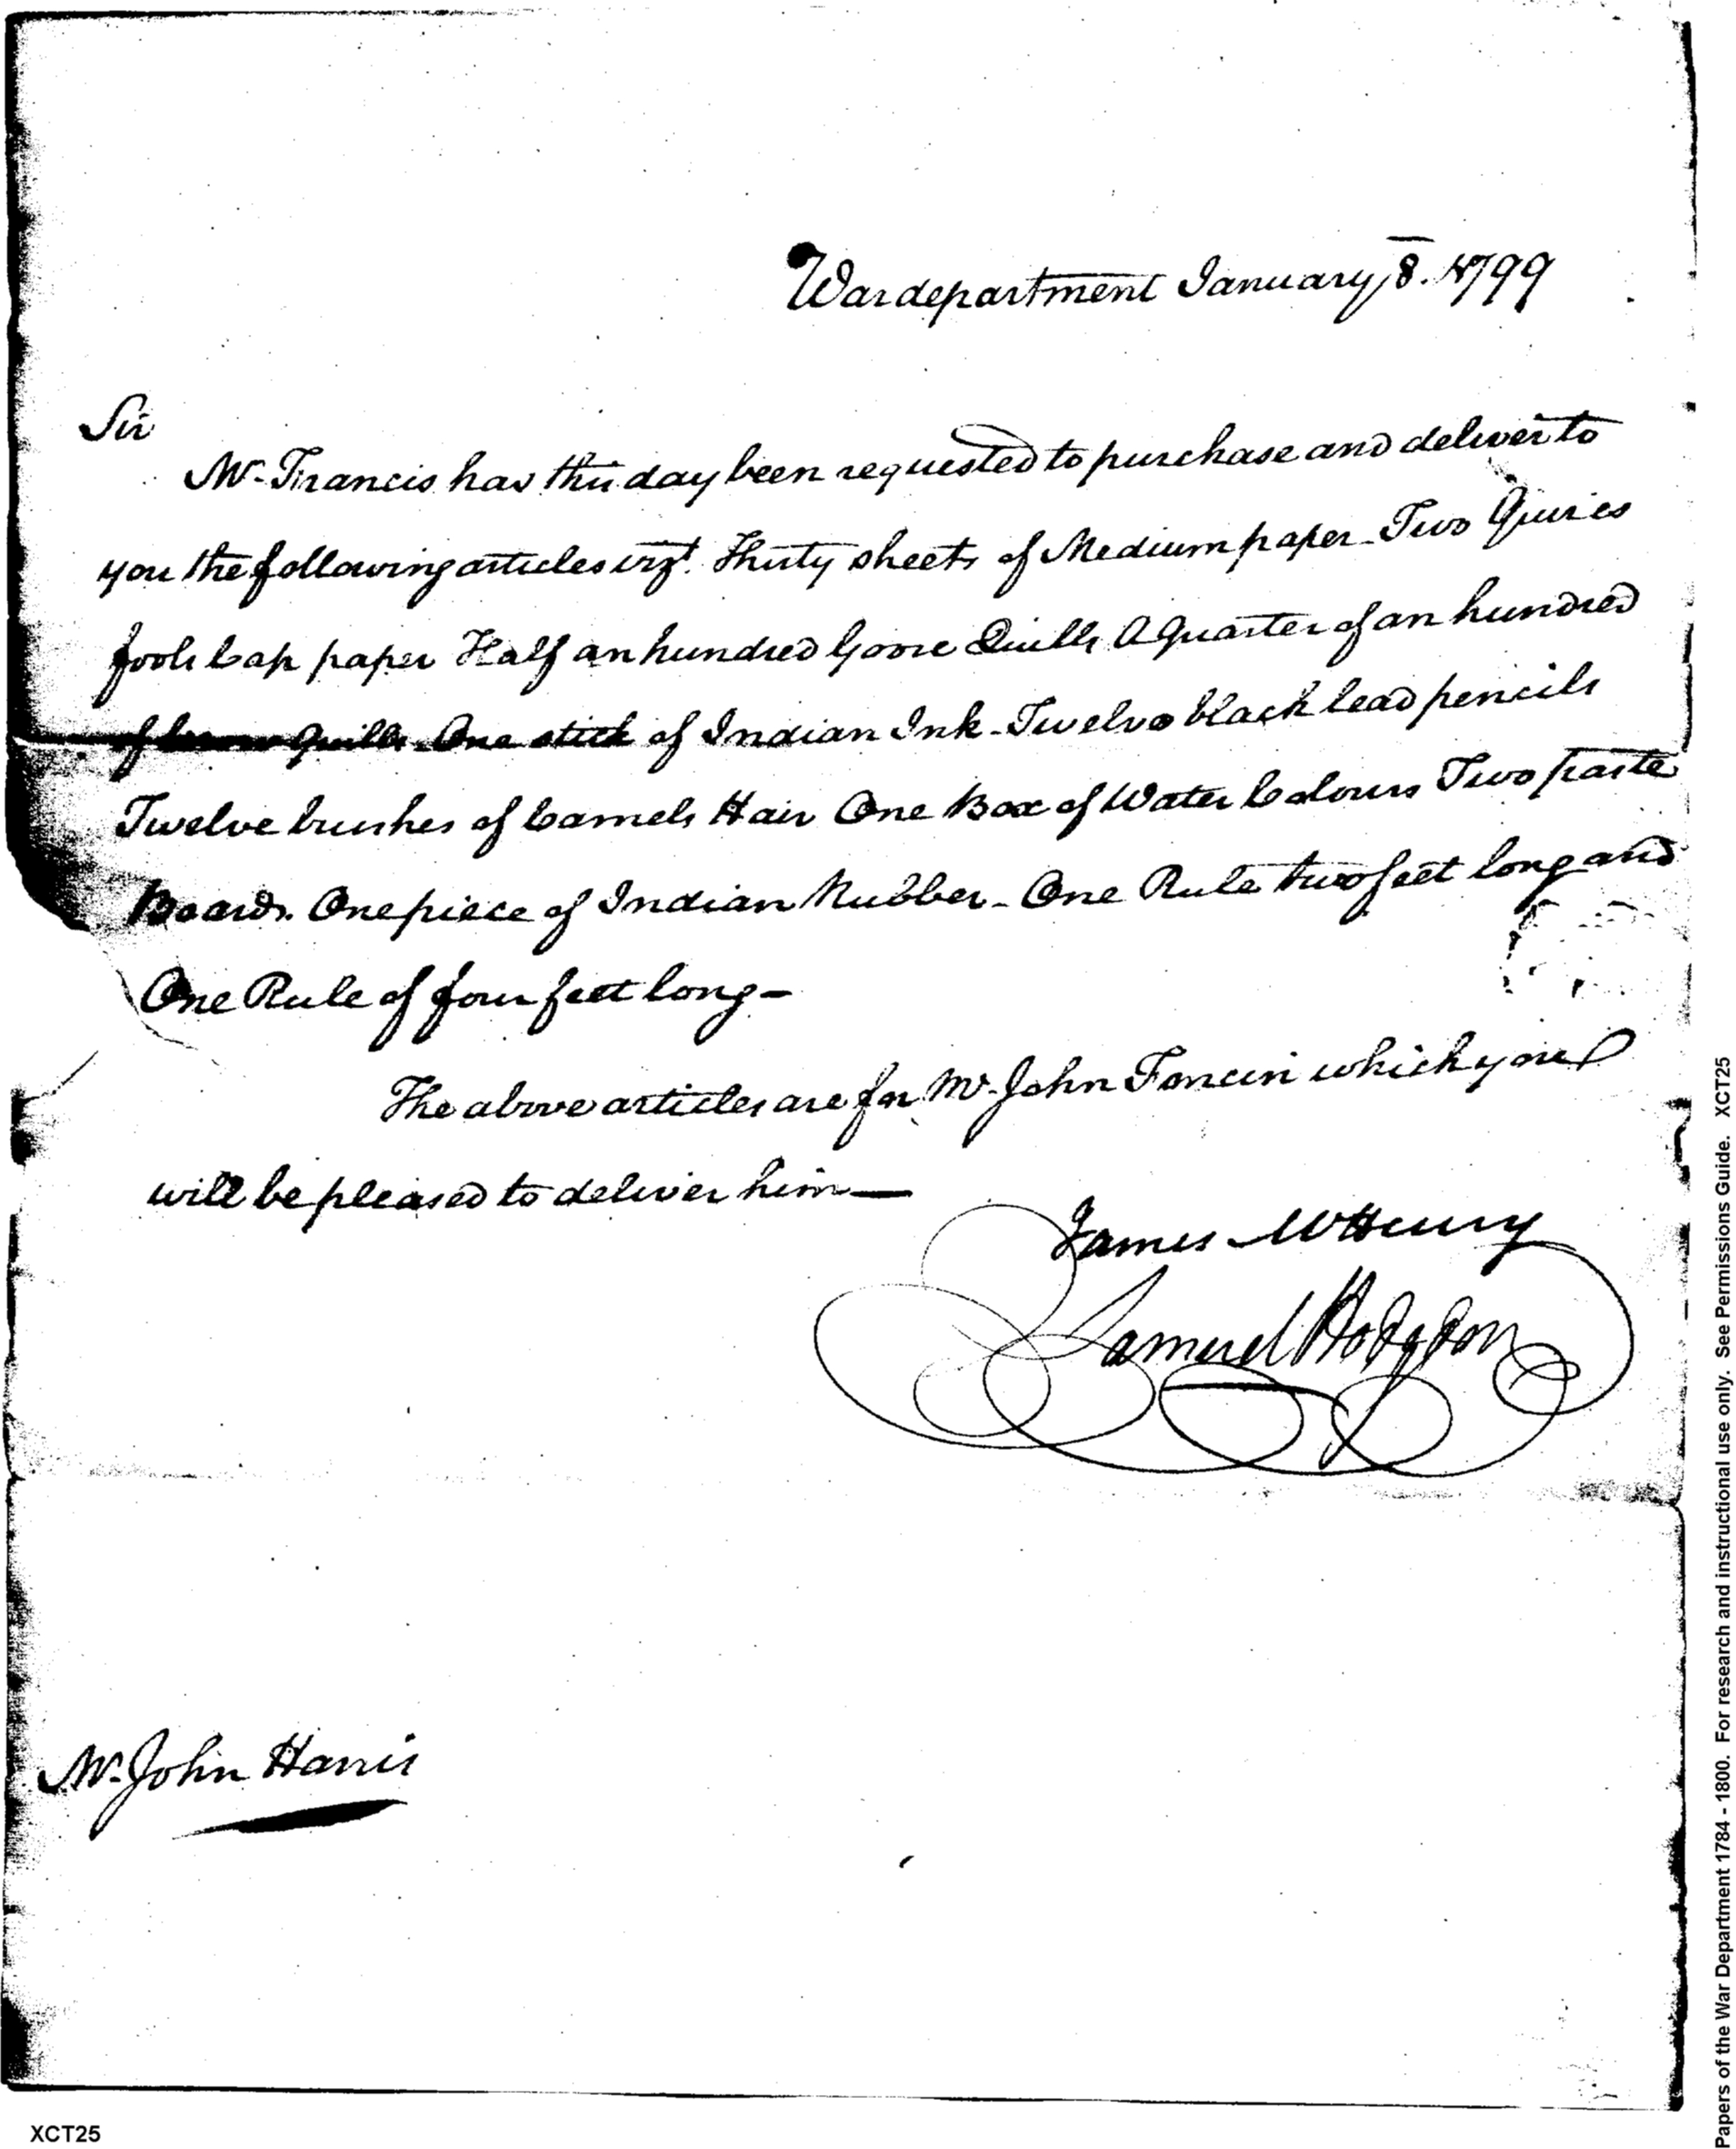 War department January 8. 1799
Sir
Mr. Francis has this day been requested to purchase and deliver to
you the following articles vizt. Thirty sheets of Medium paper - Two Quires
fools Cap paper Half an hundred Goose Quills A Quarter of an hundred
of Crow Quills - One stick of Indian Ink - Twelve black lead pencils
Twelve brushes of Camels Hair One Box of Water Colours Two paste
Boards. One piece of Indian Rubber - One Rule two feet long and
One Rule of four feet long -
The above articles are for Mr. John Foncin which you
will be pleased to deliver him —
James McHenry
Samuel Hodgdon
Mr. John Harris
XCT25
Papers of the War Department 1784 - 1800. For research and instructional use only. See Permissions Guide. XCT25